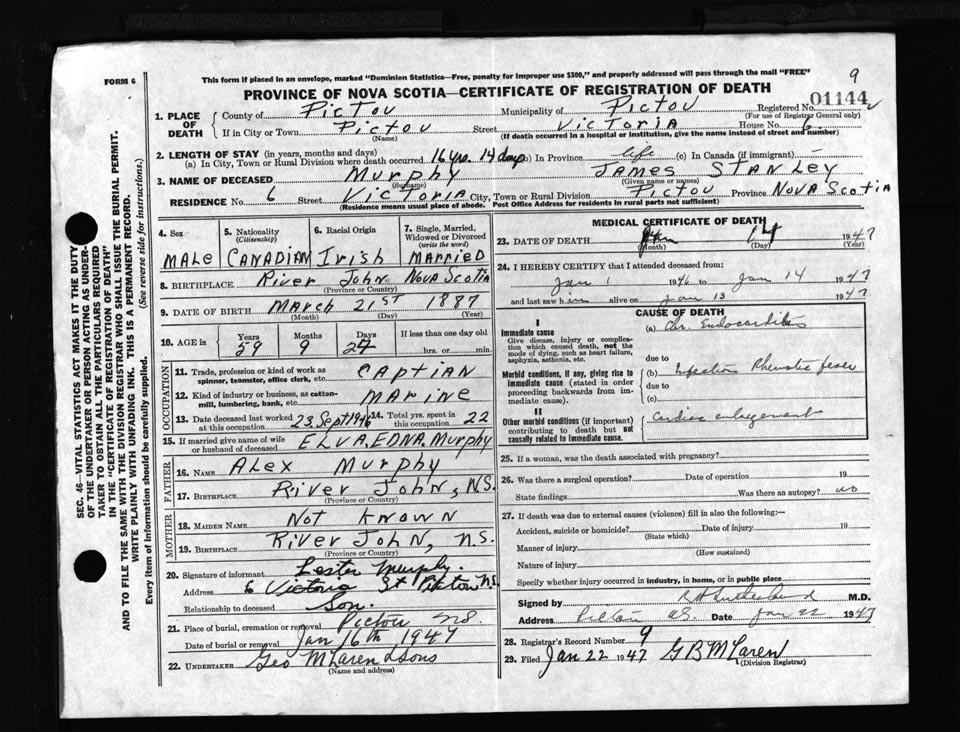 FORM 6
This form if placed in an envelope, marked "Dominion Statistics—Free, penalty for improper use $300," and properly addressed will pass through the mail "FREE"
9
PROVINCE OF NOVA SCOTIA—CERTIFICATE OF REGISTRATION OF DEATH
01144
1. PLACE OF DEATH
County of Pictou Municipality of Pictou Registered No.
(For use of Registrar General only)
If in City or Town Pictou Street Victoria House No. 6
(Name) (If death occurred in a hospital or institution, give the name instead of street and number)
2. LENGTH OF STAY (in years, months and days)
(a) In City, Town or Rural Division where death occurred 16 yrs. 14 days (b) In Province life (c) In Canada (if immigrant) —
3. NAME OF DECEASED Murphy JAMES STANLEY
(Surname) (Given name or names)
RESIDENCE No. 6 Street Victoria City, Town or Rural Division Pictou Province Nova Scotia
(Residence means usual place of abode. Post Office Address for residents in rural parts not sufficient)
4. Sex MALE
5. Nationality (Citizenship) CANADIAN
6. Racial Origin Irish
7. Single, Married, Widowed or Divorced (write the word) MARRIED
8. BIRTHPLACE River John Nova Scotia
(Province or Country)
9. DATE OF BIRTH March 21ST 1887
(Month) (Day) (Year)
10. AGE in Years 59 Months 9 Days If less than one day old hrs. or min.
OCCUPATION
11. Trade, profession or kind of work as spinner, teamster, office clerk, etc. CAPTIAN
12. Kind of industry or business, as cotton-mill, lumbering, bank, etc. MARINE
13. Date deceased last worked at this occupation 23 Sept 1946 14. Total yrs. spent in this occupation 22
15. If married give name of wife or husband of deceased ELVA. EDNA. Murphy
FATHER
16. NAME ALEX Murphy
17. BIRTHPLACE River John, N.S.
(Province or Country)
MOTHER
18. MAIDEN NAME Not Known
19. BIRTHPLACE River John, N.S.
(Province or Country)
20. Signature of informant Lester Murphy.
Address 6 Victoria St Pictou N.S.
Relationship to deceased Son.
21. Place of burial, cremation or removal Pictou N.S.
Date of burial or removal Jan 16th 1947
22. UNDERTAKER Geo McLaren & Sons
(Name and address)
MEDICAL CERTIFICATE OF DEATH
23. DATE OF DEATH Jan 14 1947
(Month) (Day) (Year)
24. I HEREBY CERTIFY that I attended deceased from:
Jan 1 1946 to Jan 14 1947
and last saw him alive on Jan 13 1947
CAUSE OF DEATH
I
Immediate cause
Give disease, injury or complication which caused death, not the mode of dying, such as heart failure, asphyxia, asthenia, etc.
(a) Chr. Endocarditis
due to
Morbid conditions, if any, giving rise to immediate cause (stated in order proceeding backwards from immediate cause).
(b) Infection Rheumatic fever
due to
(c)
II
Other morbid conditions (if important) contributing to death but not causally related to immediate cause.
Cardiac enlargement
25. If a woman, was the death associated with pregnancy?
26. Was there a surgical operation? Date of operation 19
State findings Was there an autopsy? no
27. If death was due to external causes (violence) fill in also the following:—
Accident, suicide or homicide? Date of injury 19
(State which)
Manner of injury
(How sustained)
Nature of injury
Specify whether injury occurred in industry, in home, or in public place
Signed by Sutherland M.D.
Address Pictou N.S. Date Jan 22 1947
28. Registrar's Record Number 9
29. Filed Jan 22 1947 G B McLaren
(Division Registrar)
SEC. 46—VITAL STATISTICS ACT MAKES IT THE DUTY
OF THE UNDERTAKER OR PERSON ACTING AS UNDERTAKER
TO OBTAIN ALL THE PARTICULARS REQUIRED
IN THE "CERTIFICATE OF REGISTRATION OF DEATH"
AND TO FILE THE SAME WITH THE DIVISION REGISTRAR WHO SHALL ISSUE THE BURIAL PERMIT.
WRITE PLAINLY WITH UNFADING INK. THIS IS A PERMANENT RECORD.
Every item of information should be carefully supplied. (See reverse side for instructions.)